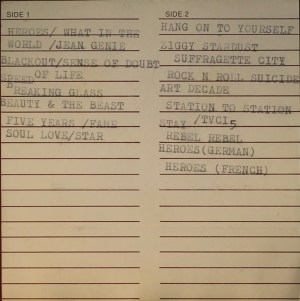 SIDE 1
HEROES/ WHAT IN THE
WORLD /JEAN GENIE
BLACKOUT/SENSE OF DOUBT
SPEED OF LIFE
BREAKING GLASS
BEAUTY & THE BEAST
FIVE YEARS /FAME
SOUL LOVE/STAR
SIDE 2
HANG ON TO YOURSELF
ZIGGY STARDUST
SUFFRAGETTE CITY
ROCK N ROLL SUICIDE
ART DECADE
STATION TO STATION
STAY /TVC15
REBEL REBEL
HEROES(GERMAN)
HEROES (FRENCH)